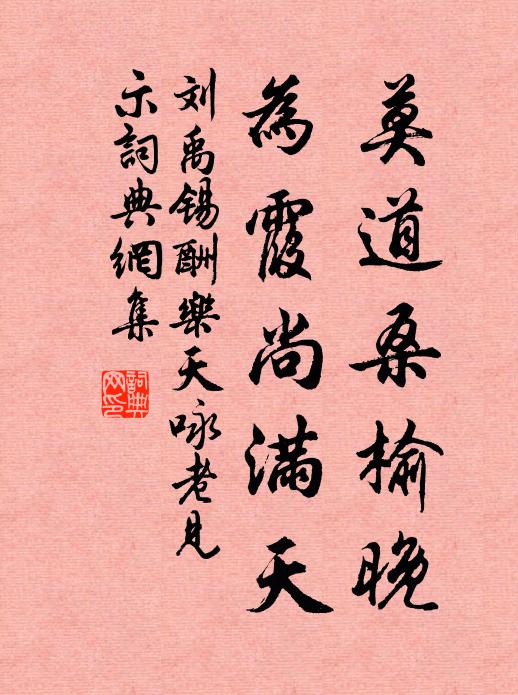 莫道桑榆晚
為霞尚滿天
刘禹锡酬樂天咏老見
示詞典網集
詞典
网印